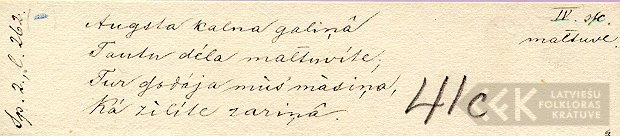 Sp. 2., l. 262.
Augsta kalna galiņâ
Tautu dêla maltuvîte;
Tur godâja mûs' mâsiņa,
Kâ zîlîte zariņâ.
IV. sfc.
maltuve.
41c
LATVIEŠU
FOLKLORAS
KRĀTUVE